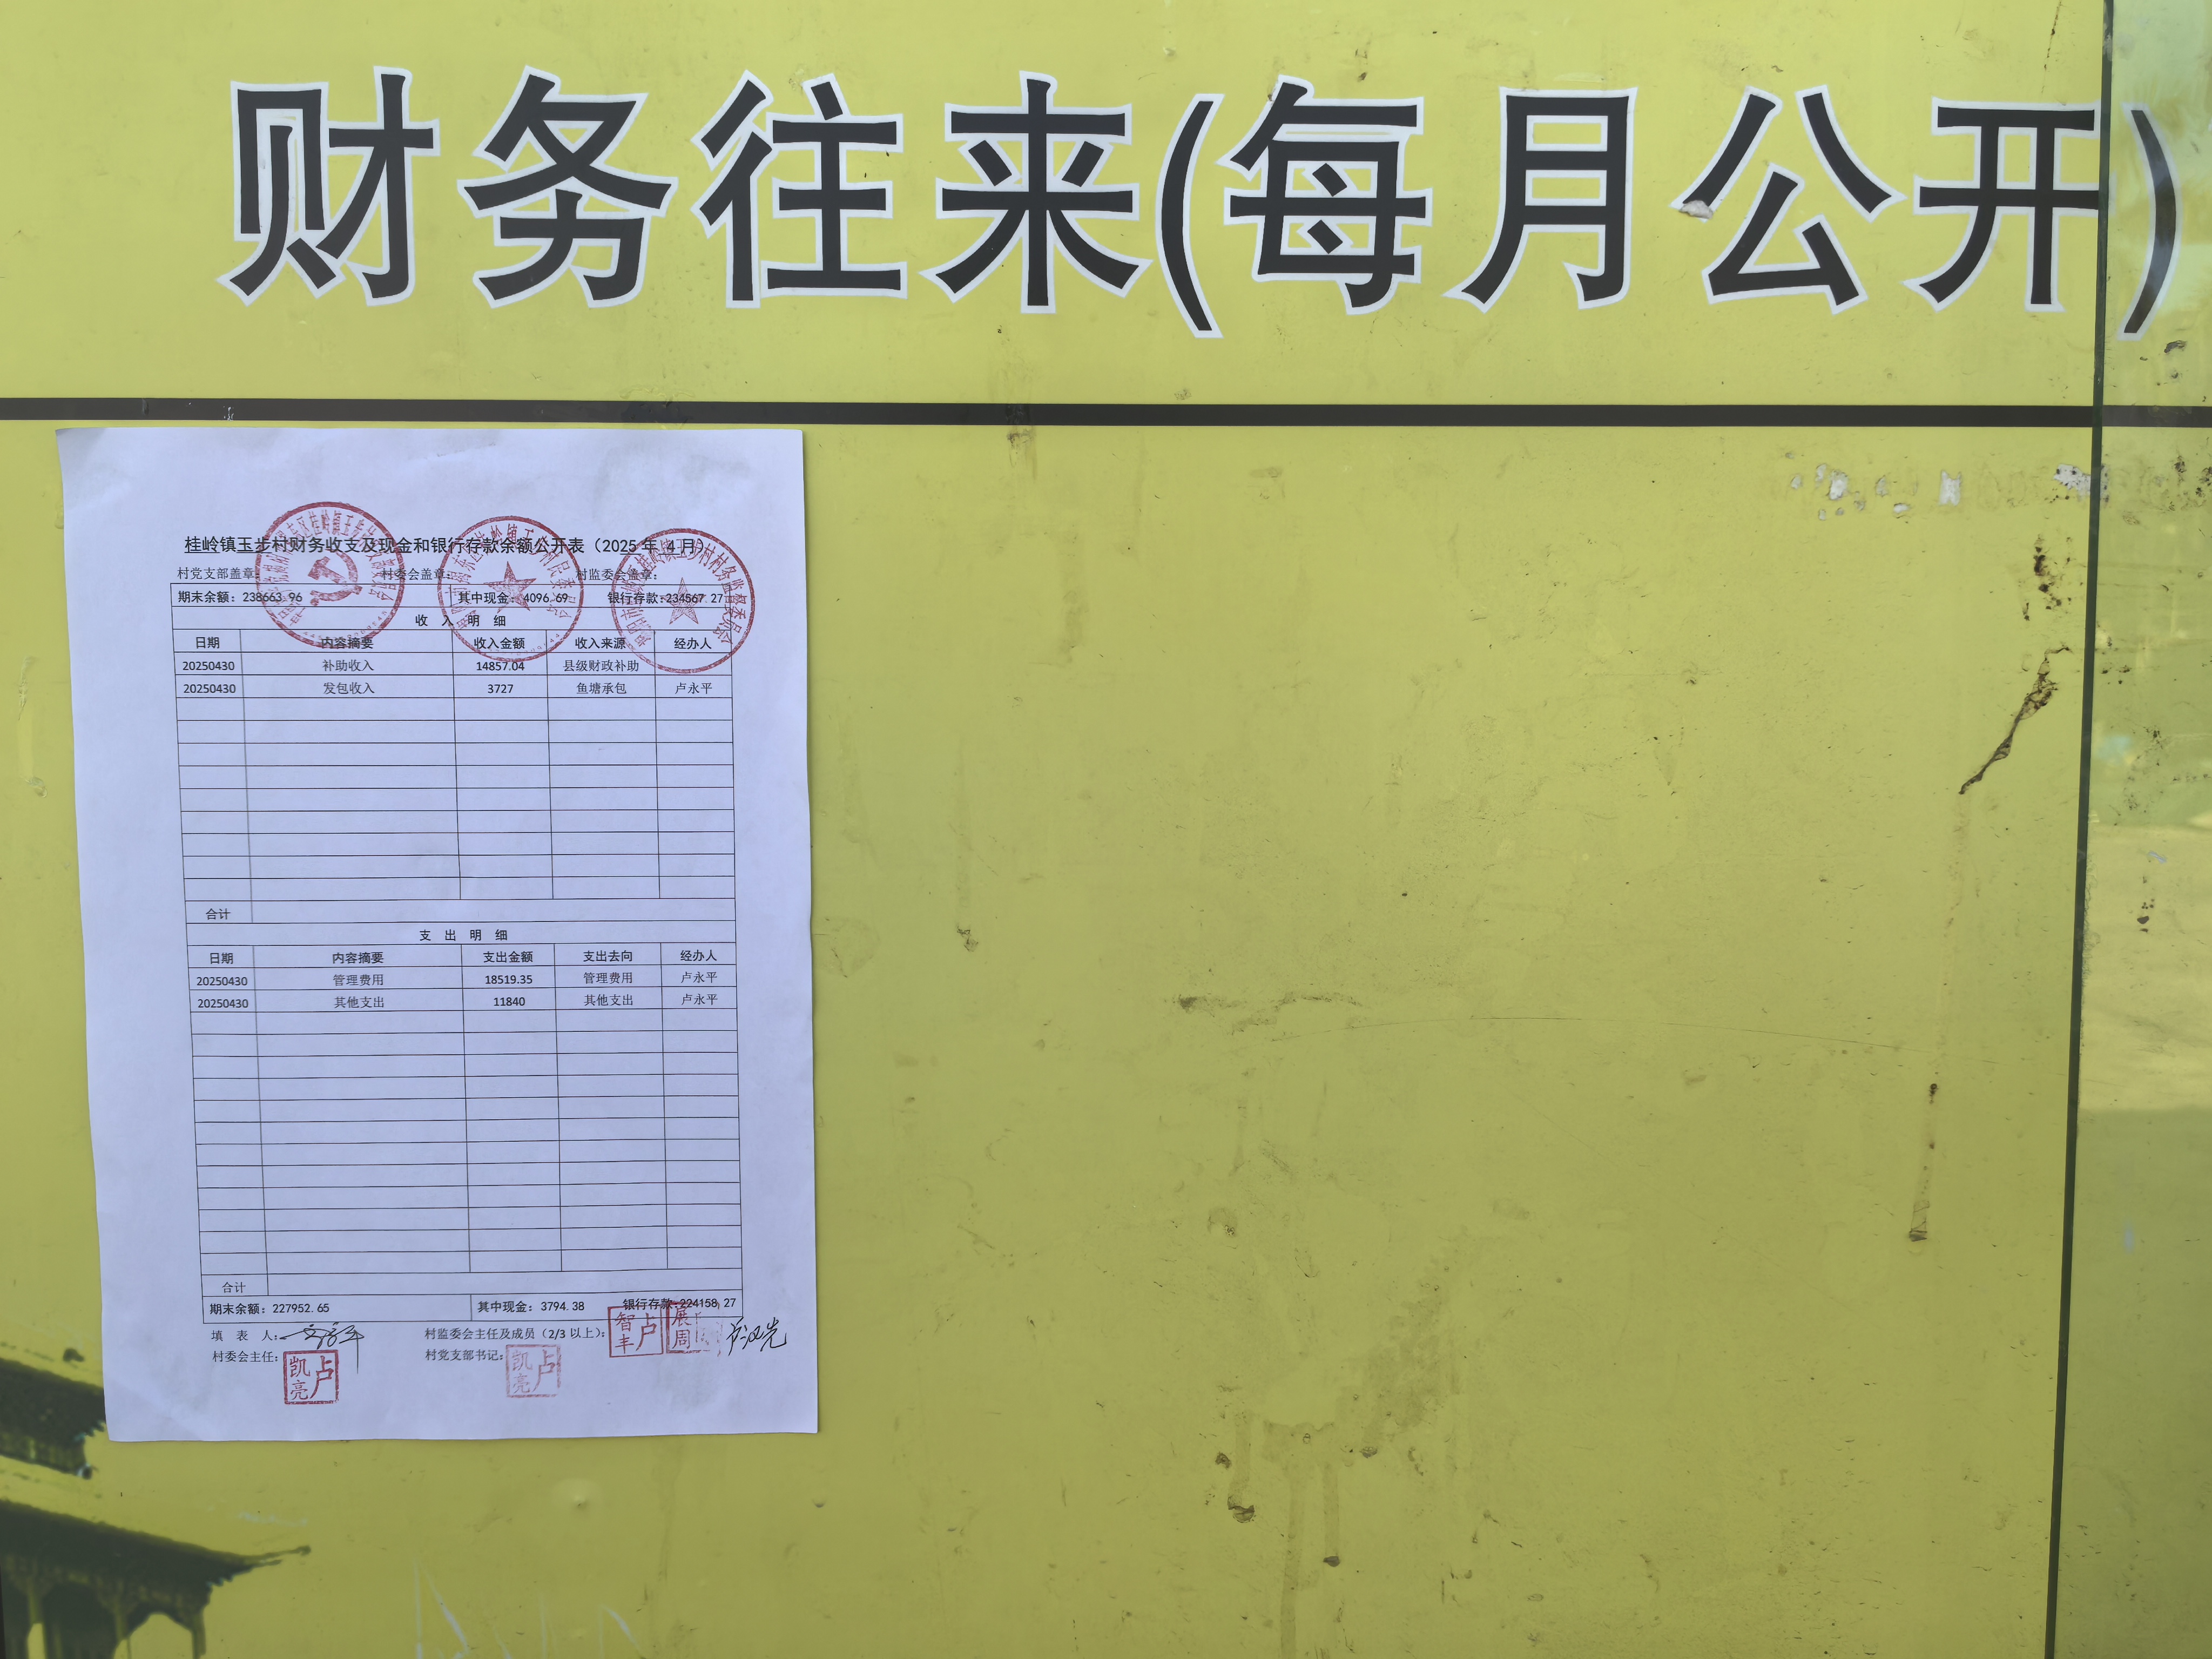 财务往来(每月公开)
桂岭镇玉步村财务收支及现金和银行存款余额公开表（2025 年 4 月）
村党支部盖章： 村委会盖章： 村监委会盖章：
期末余额：238663.96 其中现金：4096.69 银行存款：234567.27
收 入 明 细
日期 内容摘要 收入金额 收入来源 经办人
20250430 补助收入 14857.04 县级财政补助
20250430 发包收入 3727 鱼塘承包 卢永平
合计
支 出 明 细
日期 内容摘要 支出金额 支出去向 经办人
20250430 管理费用 18519.35 管理费用 卢永平
20250430 其他支出 11840 其他支出 卢永平
合计
期末余额：227952.65 其中现金：3794.38 银行存款：224158.27
填 表 人： 村监委会主任及成员（2/3 以上）： 卢智丰 周展
村委会主任： 卢凯亮 村党支部书记： 卢凯亮